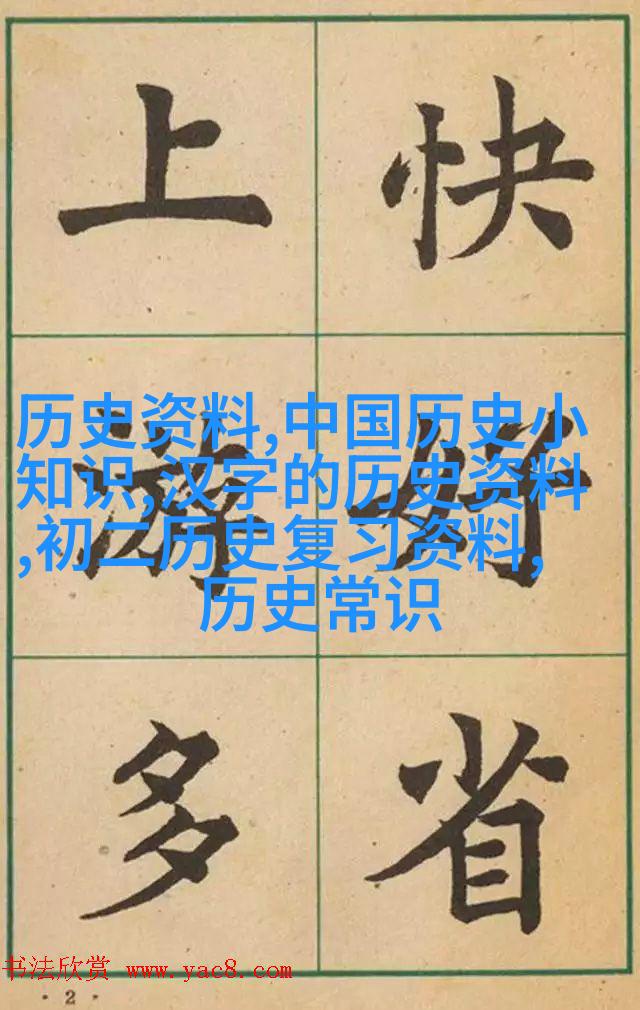 上游多
快好省
历史资料,中国历史小
知识,汉字的历史资料
,初二历史复习资料,
历史常识
书法欣赏 www.yac8.com
·2·